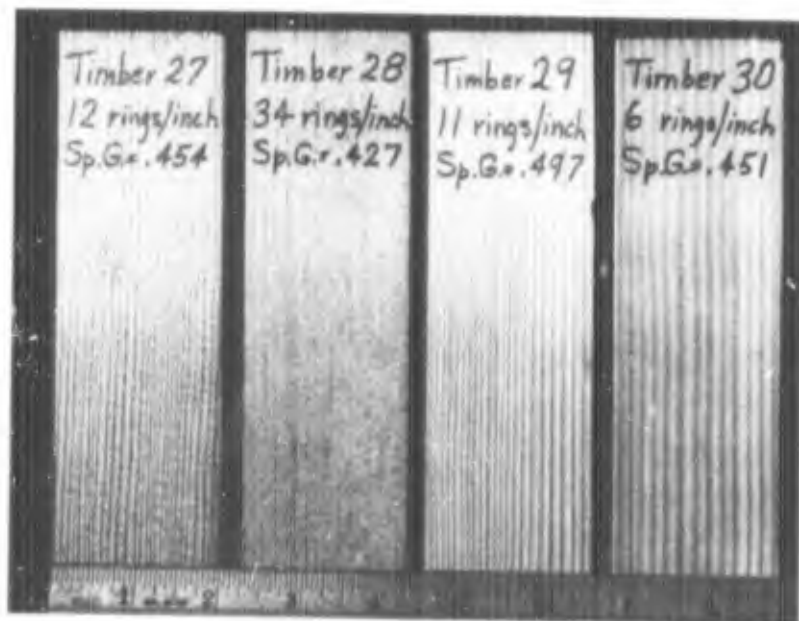 Timber 27
12 rings/inch
Sp.G.=.454
Timber 28
34 rings/inch
Sp.G.=.427
Timber 29
11 rings/inch
Sp.G.=.497
Timber 30
6 rings/inch
Sp.G.=.451
1 2 3